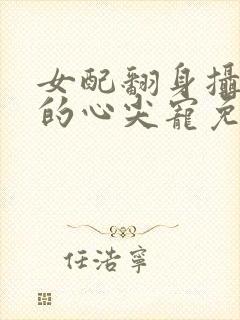 女配翻身攝
的心尖寵免
任浩寧